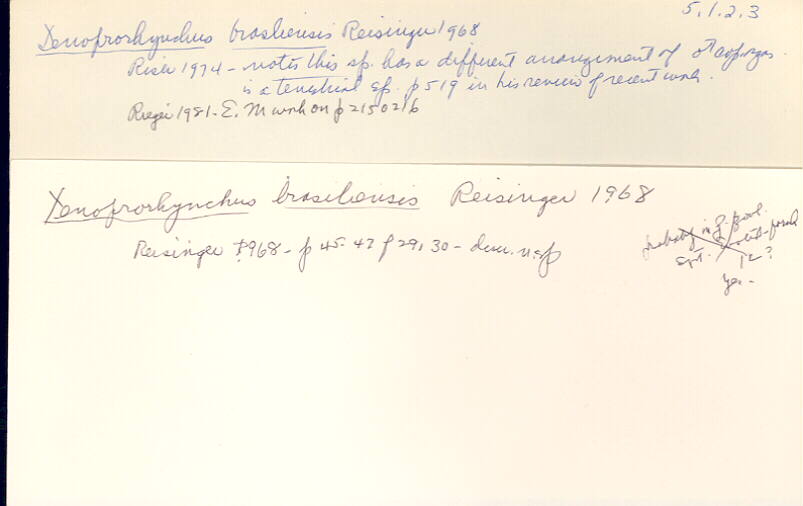 5.1.2.3
Xenoprorhynchus brasiliensis Reisinger 1968
1974 - notes this sp. has a different arrangement of
is a terrestrial sp. p 519 in his review of recent work.
Rieger 1981 - E. M work on p 215 0216
Xenoprorhynchus brasiliensis Reisinger 1968
Reisinger 1968 - p 45-47 f 29, 30 - descr. n. sp
probably in Z. Zool.
Syst.
12?
Yes -